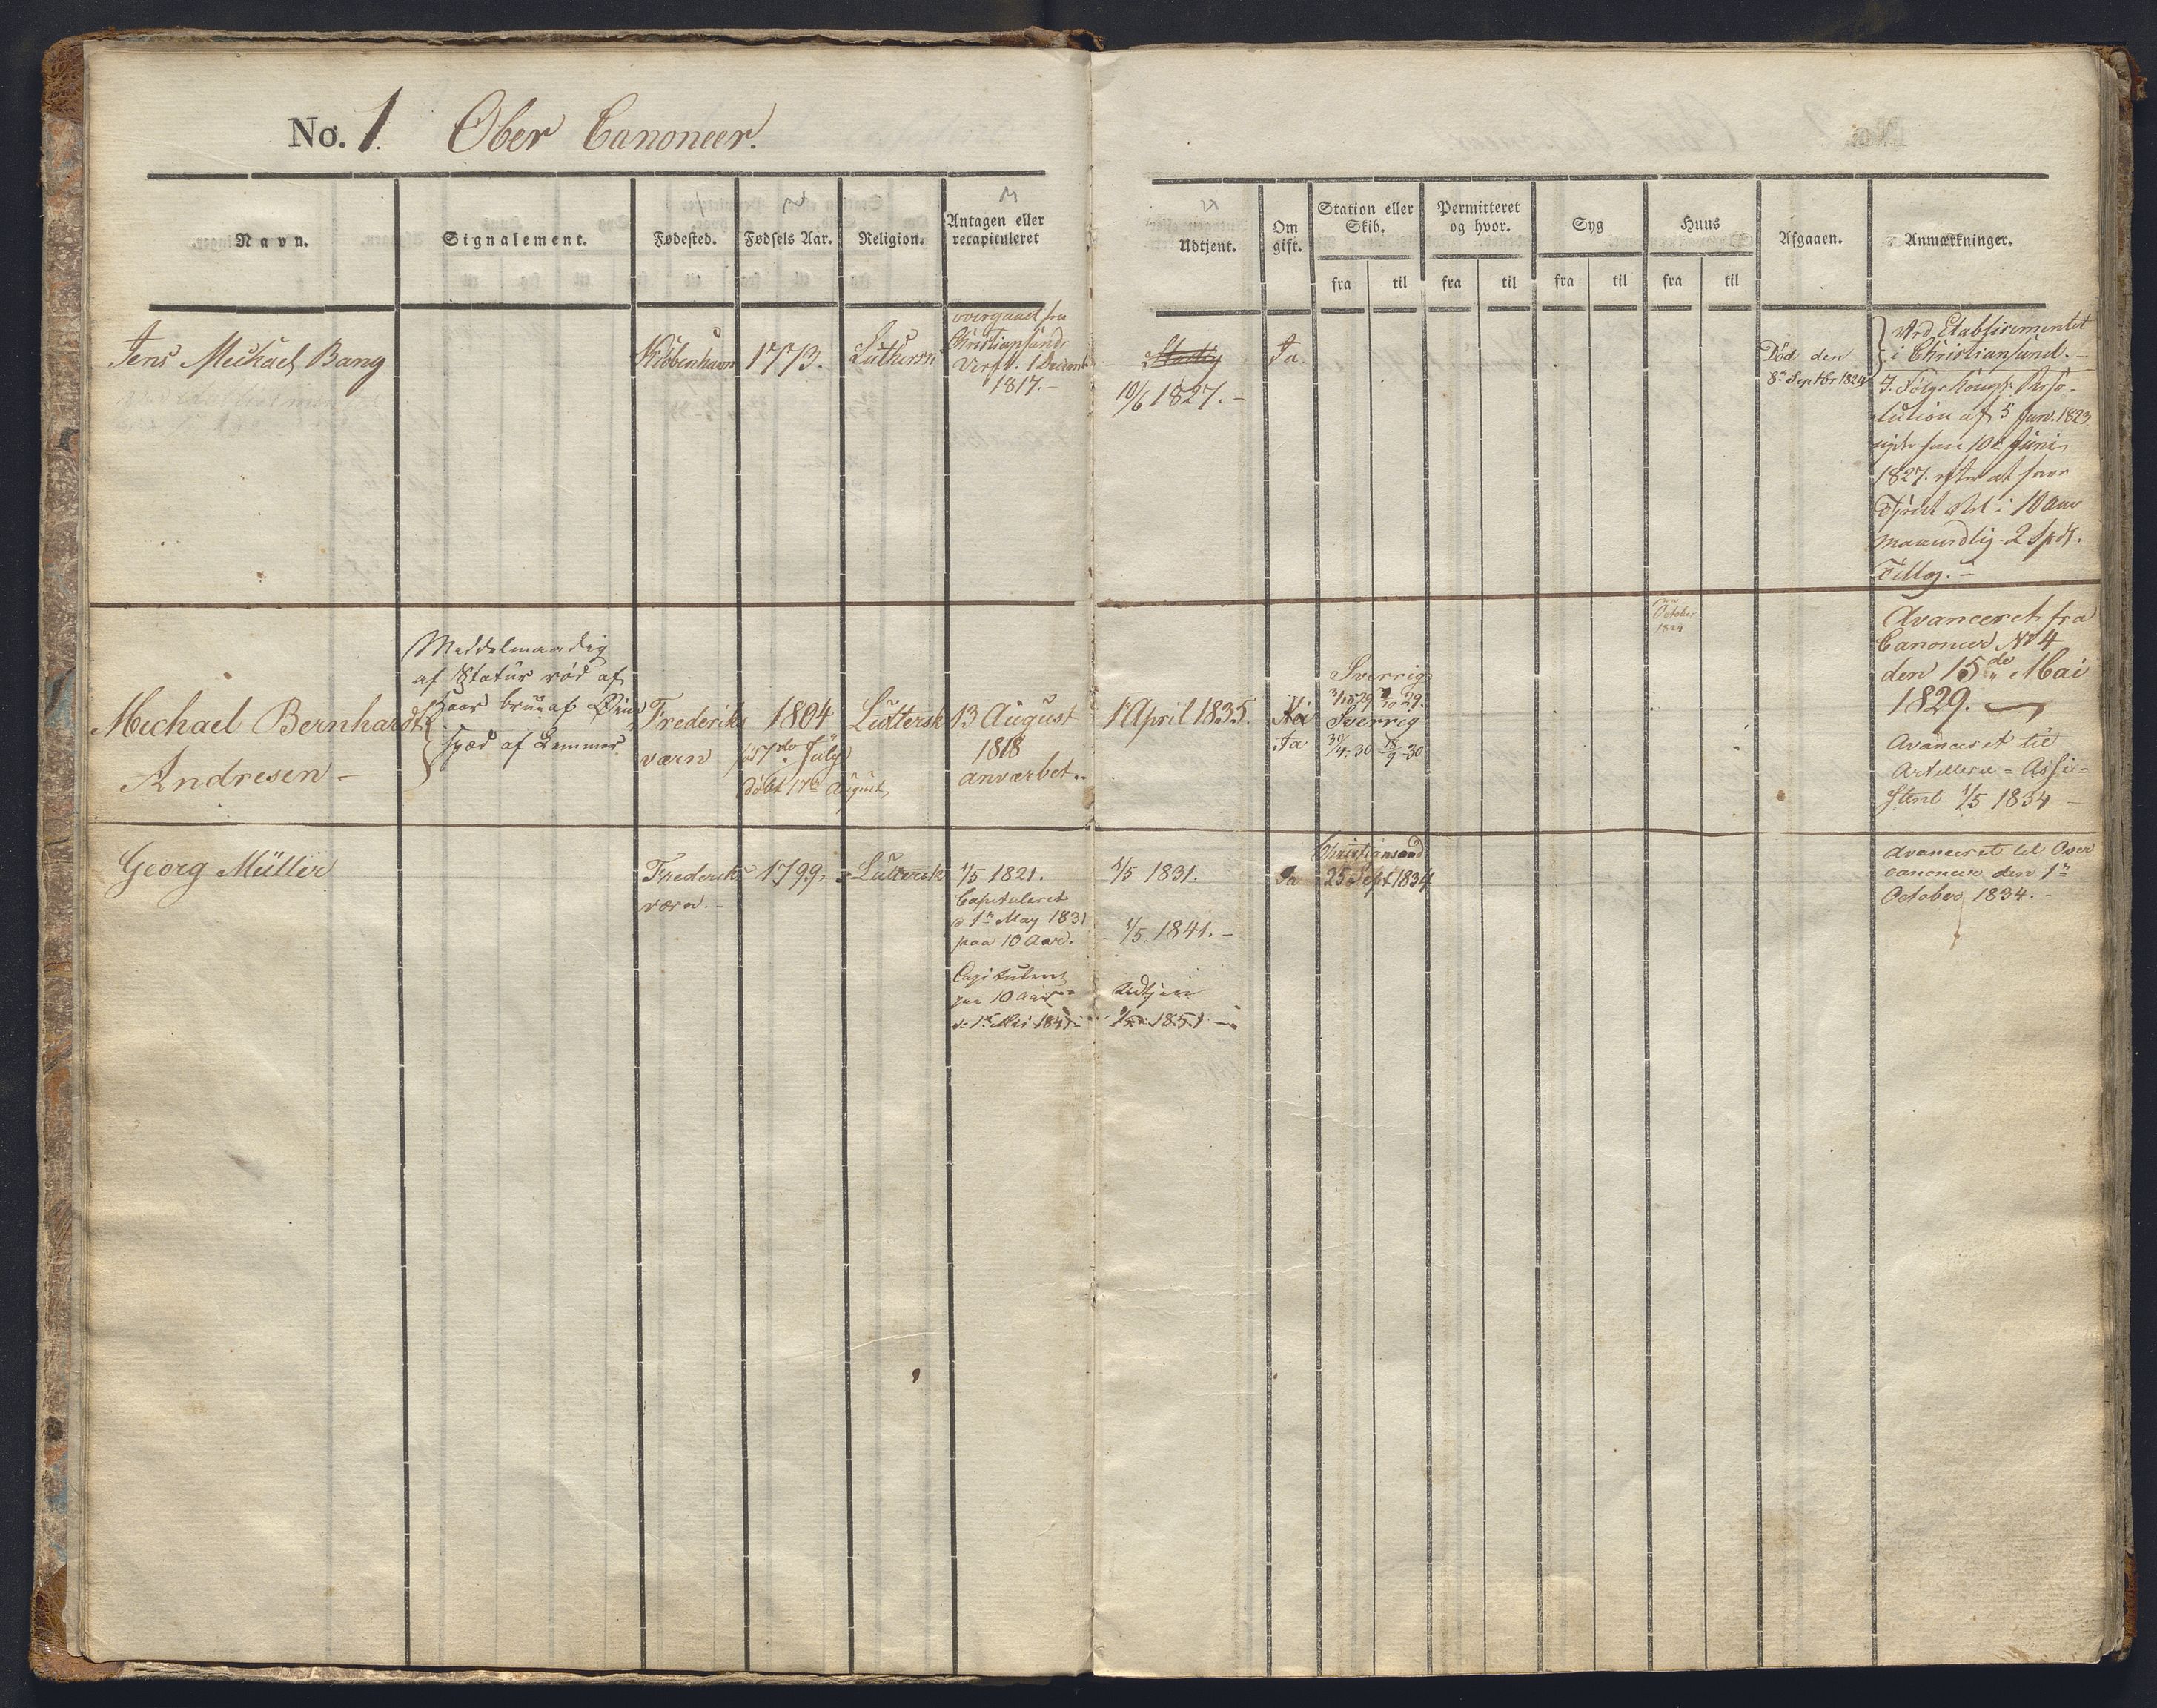 No. 1. Ober Canoneer.
Navn.
Signalement.
Fødested.
Fødsels Aar.
Religion.
Antagen eller
recapituleret
Udtjent.
Om
gift.
Station eller
Skib.
fra
til
Permitteret
og hvor.
fra
til
Syg
fra
til
Huus
fra
til
Afgaaen.
Anmærkninger.
Jens Michael Bang
Kiöbenhavn
1773.
Luthersk
overgaaet fra
Christiansunds
Verft d. 1 Decemb
1817.-
10/6 1827.-
Ja.
Död den
8de Septbr 1824
Ved Etablisementet
i Christiansund.-
I Fölge Kongl: Reso-
lution af 5 Janv. 1823
10de Juni
1827. efter at have
tjent i 10 Aar
maanedlig 2 Spd.
Tillæg.-
Michael Bernhardt
Andresen -
Middelmaadig
af Statur röd af
Haar brun af Öine
spæd af Lemmer
Frederiks
værn
1804
föd 7de July
döbt 17de August
Luttersk
13 August
1818
anværbet..
1 April 1835.
Nei
Ja
Sverrig
Sverrig
30/4-30 18/9-30
October
1824
Avanceret fra
Canoneer No 4
den 15de Mai
1829.
Avanceret til
Artillerie-Assi-
stent 1/5 1834 -
Georg Müller
Frederiks
værn.-
1799.
Luttersk
1/5 1821.
Capituleret
d 1ste May 1831
paa 10 Aar.
Capituleret
paa 10 Aar
d. 1ste Mai 1841
1/5 1831.
- 1/5. 1841.-
Udtjent
1/5 1851
Ja
Christiansand
25 Sept 1834
Avanceret til Over
canoneer den 1ste
October 1834.-